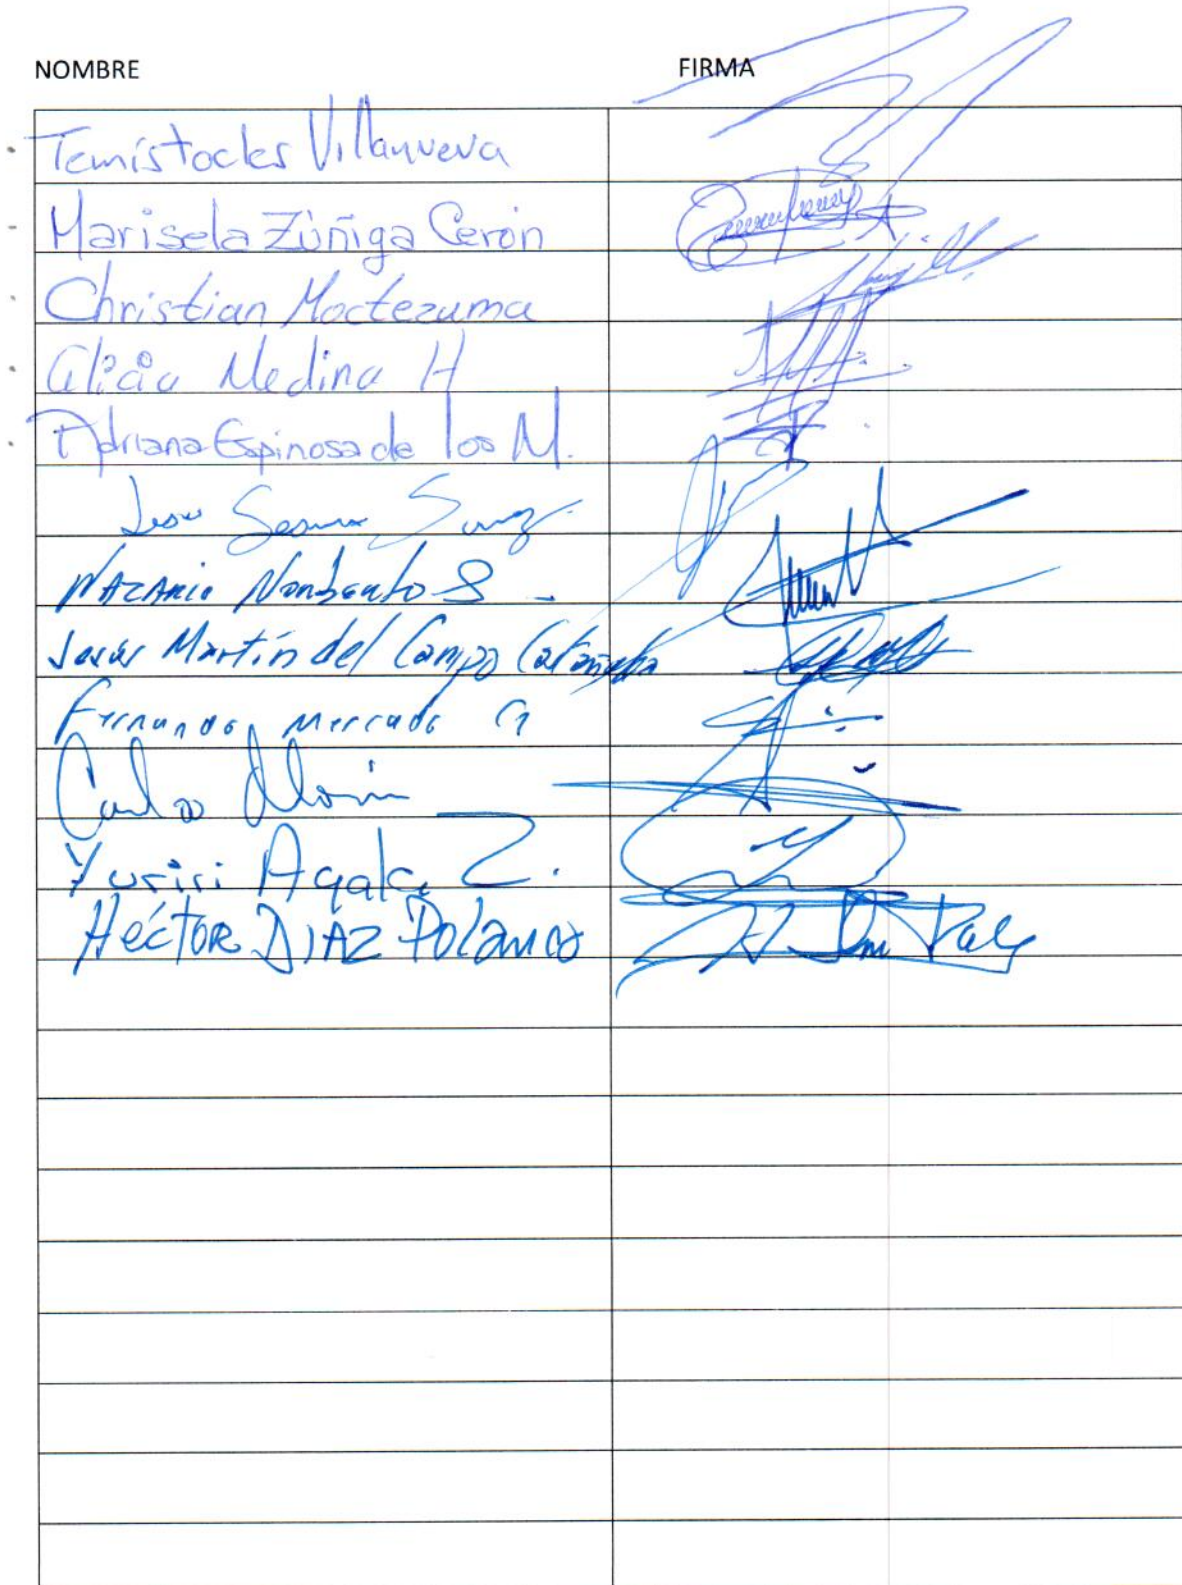 NOMBRE FIRMA
Temístocles Villanueva
Marisela Zúñiga Cerón
Christian Moctezuma
Alicia Medina H
Adriana Espinosa de los M.
Jesús Sesma Suárez
Nazario Norberto S.
Jesús Martín del Campo Castañeda
Fernando Mercado G
Carlos
Yuriri Ayala Z.
Héctor DIAZ POLANCO